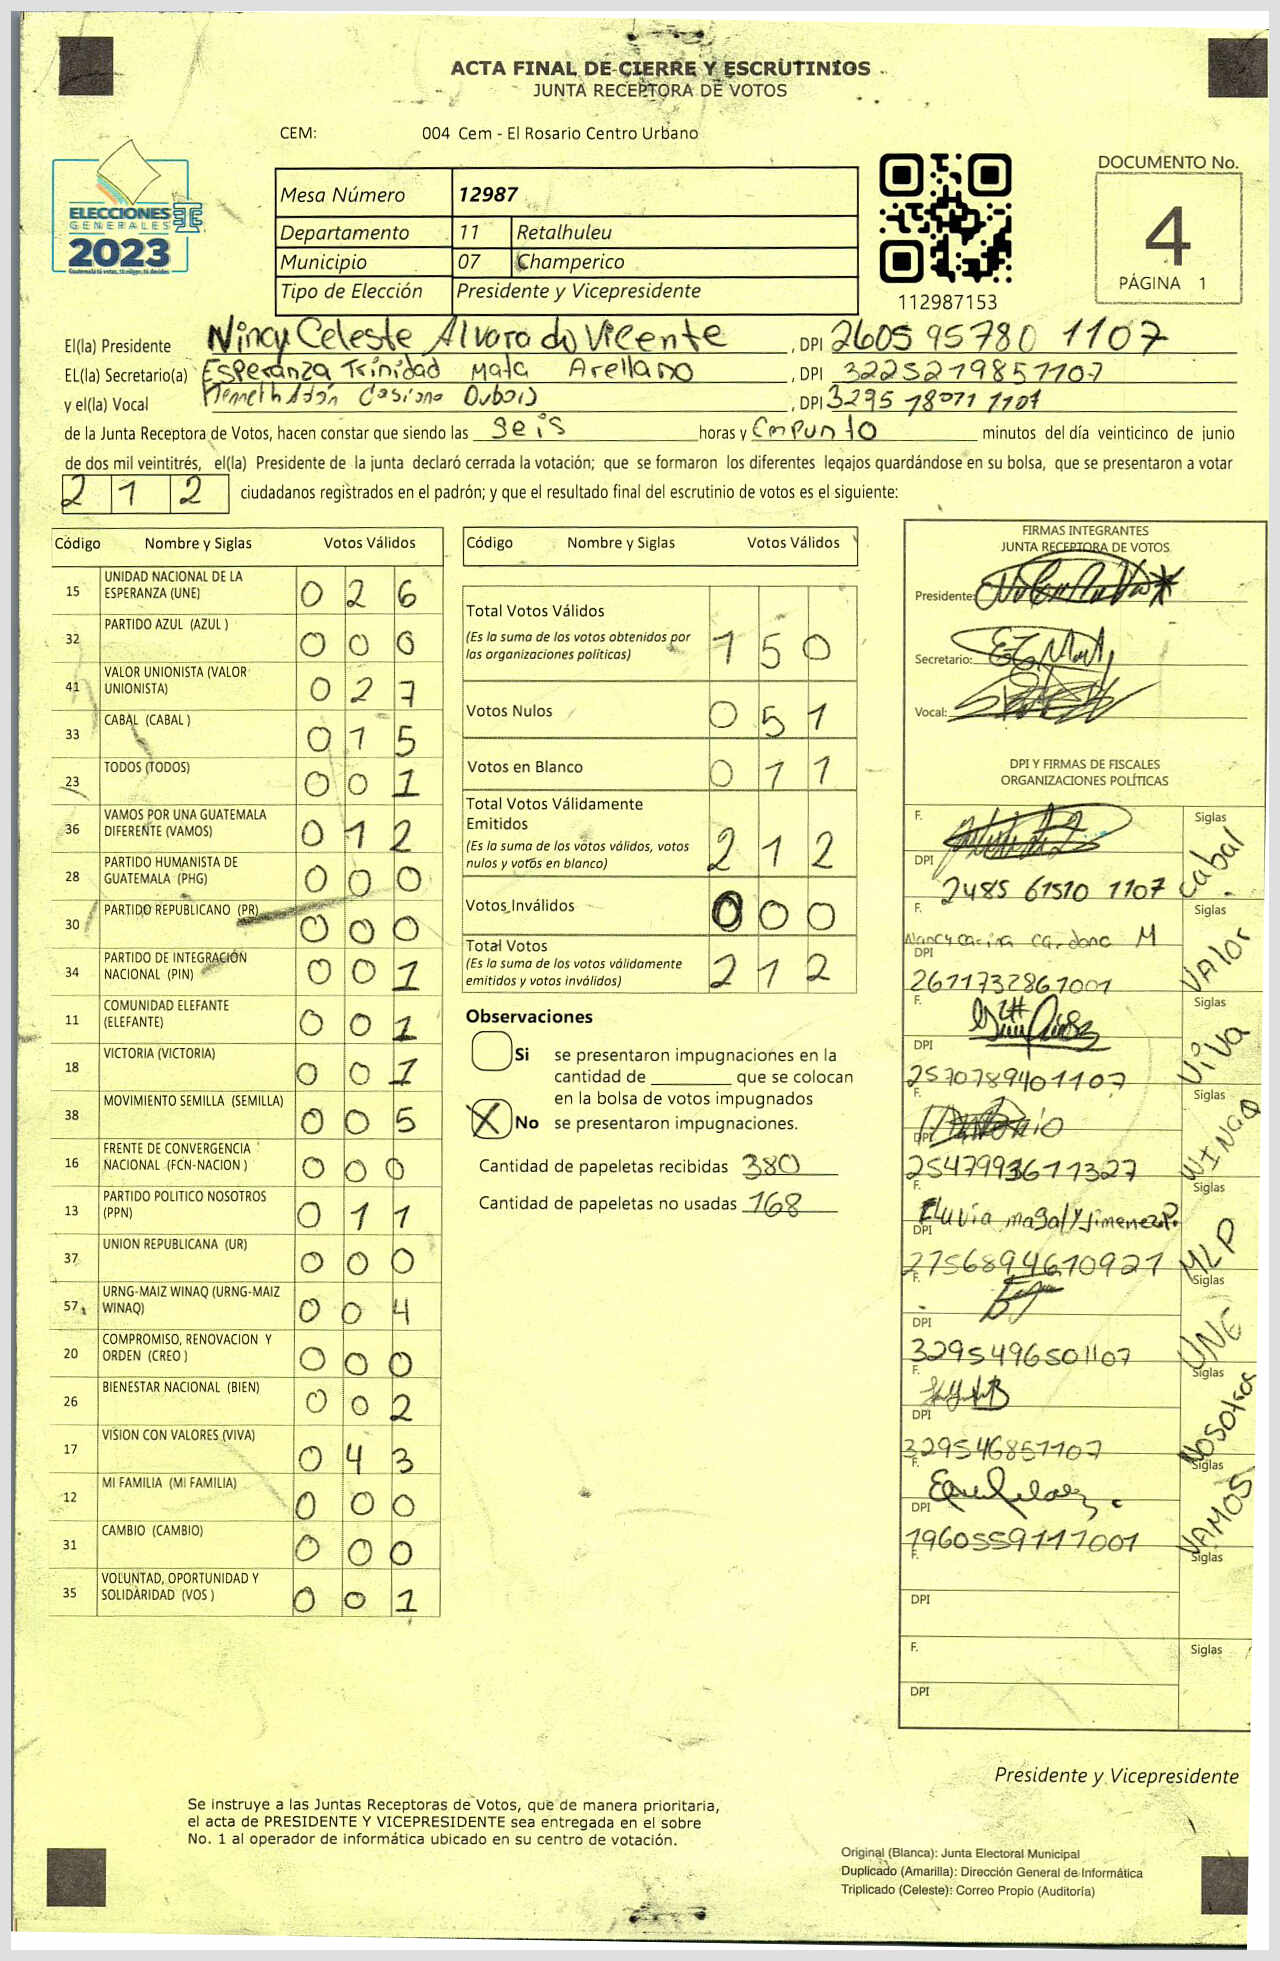 ACTA FINAL DE CIERRE Y ESCRUTINIOS
JUNTA RECEPTORA DE VOTOS
CEM: 004 Cem - El Rosario Centro Urbano
ELECCIONES
GENERALES
2023
Guatemala tú votas, tú eliges, tú decides
Mesa Número 12987
Departamento 11 Retalhuleu
Municipio 07 Champerico
Tipo de Elección Presidente y Vicepresidente
112987153
DOCUMENTO No.
4
PÁGINA 1
El(la) Presidente Nincy Celeste Alvarado Vicente, DPI 2605 95780 1107
EL(la) Secretario(a) Esperanza Trinidad Mata Arellano, DPI 3225219851107
y el(la) Vocal Casiano Dubois, DPI 3295 18071 1107
de la Junta Receptora de Votos, hacen constar que siendo las seis horas y en punto minutos del día veinticinco de junio
de dos mil veintitrés, el(la) Presidente de la junta declaró cerrada la votación; que se formaron los diferentes legajos guardándose en su bolsa, que se presentaron a votar
212 ciudadanos registrados en el padrón; y que el resultado final del escrutinio de votos es el siguiente:
Código Nombre y Siglas Votos Válidos
15 UNIDAD NACIONAL DE LA ESPERANZA (UNE) 026
32 PARTIDO AZUL (AZUL ) 000
41 VALOR UNIONISTA (VALOR UNIONISTA) 027
33 CABAL (CABAL ) 015
23 TODOS (TODOS) 001
36 VAMOS POR UNA GUATEMALA DIFERENTE (VAMOS) 012
28 PARTIDO HUMANISTA DE GUATEMALA (PHG) 000
30 PARTIDO REPUBLICANO (PR) 000
34 PARTIDO DE INTEGRACIÓN NACIONAL (PIN) 001
11 COMUNIDAD ELEFANTE (ELEFANTE) 001
18 VICTORIA (VICTORIA) 001
38 MOVIMIENTO SEMILLA (SEMILLA) 005
16 FRENTE DE CONVERGENCIA NACIONAL (FCN-NACION ) 000
13 PARTIDO POLITICO NOSOTROS (PPN) 011
37 UNION REPUBLICANA (UR) 000
57 URNG-MAIZ WINAQ (URNG-MAIZ WINAQ) 004
20 COMPROMISO, RENOVACION Y ORDEN (CREO ) 000
26 BIENESTAR NACIONAL (BIEN) 002
17 VISION CON VALORES (VIVA) 043
12 MI FAMILIA (MI FAMILIA) 000
31 CAMBIO (CAMBIO) 000
35 VOLUNTAD, OPORTUNIDAD Y SOLIDARIDAD (VOS ) 001
Código Nombre y Siglas Votos Válidos
Total Votos Válidos 150
(Es la suma de los votos obtenidos por las organizaciones políticas)
Votos Nulos 051
Votos en Blanco 011
Total Votos Válidamente Emitidos 212
(Es la suma de los votos válidos, votos nulos y votos en blanco)
Votos Inválidos 000
Total Votos 212
(Es la suma de los votos válidamente emitidos y votos inválidos)
Observaciones
Si se presentaron impugnaciones en la
cantidad de ________ que se colocan
en la bolsa de votos impugnados
X No se presentaron impugnaciones.
Cantidad de papeletas recibidas 380
Cantidad de papeletas no usadas 168
FIRMAS INTEGRANTES
JUNTA RECEPTORA DE VOTOS
Presidente:
Secretario:
Vocal:
DPI Y FIRMAS DE FISCALES
ORGANIZACIONES POLÍTICAS
F. Siglas Cabal
DPI 2485 61510 1107
F. Nancy Carina Cardona M Siglas Valor
DPI 2611732861001
F. Siglas Viva
DPI 2570789401107
F. Siglas WINAQ
DPI 2547993611327
F. Eluvia magaly Jimenez P. Siglas MLP
DPI 2756894610921
F. Siglas UNE
DPI 3295496501107
F. Siglas Nosotros
DPI 329546851107
F. Siglas VAMOS
DPI 1960559111001
F. Siglas
DPI
F. Siglas
DPI
Presidente y Vicepresidente
Se instruye a las Juntas Receptoras de Votos, que de manera prioritaria,
el acta de PRESIDENTE Y VICEPRESIDENTE sea entregada en el sobre
No. 1 al operador de informática ubicado en su centro de votación.
Original (Blanca): Junta Electoral Municipal
Duplicado (Amarilla): Dirección General de Informática
Triplicado (Celeste): Correo Propio (Auditoría)